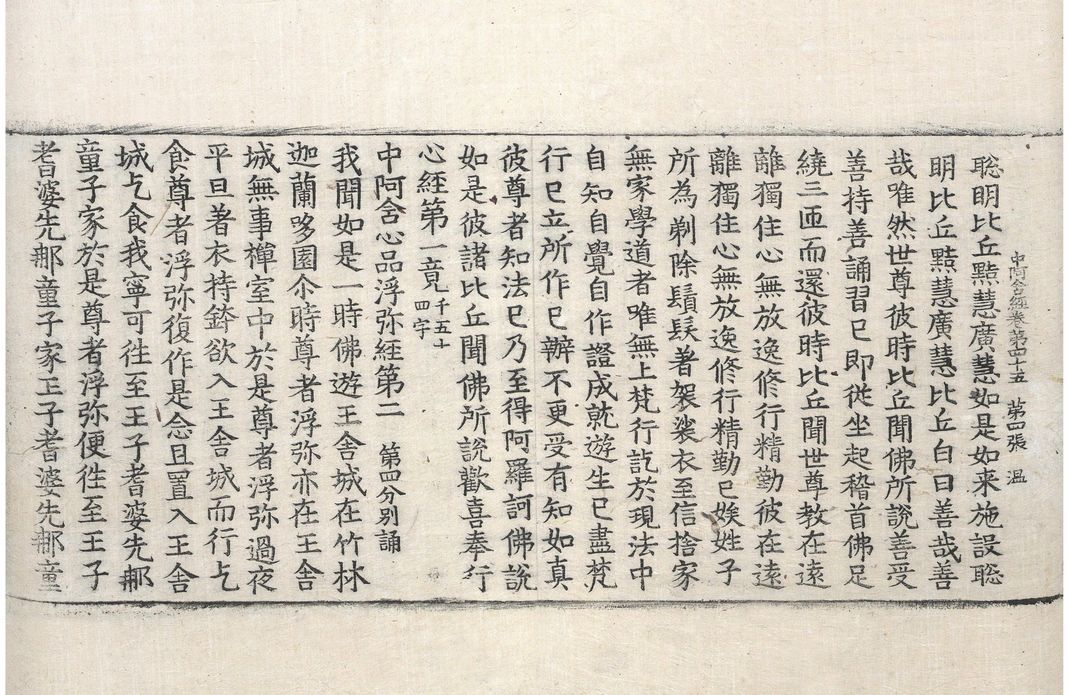 中阿含經卷第四十五　第四張　溫
聡明比丘黠慧廣慧如是如来施設聡
明比丘黠慧廣慧比丘白曰善哉善
哉唯然世尊彼時比丘聞佛所說善受
善持善誦習已即從坐起稽首佛足
繞三匝而還彼時比丘聞世尊教在遠
離獨住心無放逸修行精勤彼在遠
離獨住心無放逸修行精勤已族姓子
所為剃除鬚髮著袈裟衣至信捨家
無家學道者唯無上梵行訖於現法中
自知自覺自作證成就遊生已盡梵
行已立所作已辦不更受有知如真
彼尊者知法已乃至得阿羅訶佛說
如是彼諸比丘聞佛所說歡喜奉行
心經第一竟千五十四字
中阿含心品浮弥經第二　第四分别誦
我聞如是一時佛遊王舍城在竹林
迦蘭哆園尒時尊者浮弥亦在王舍
城無事禪室中於是尊者浮弥過夜
平旦著衣持鉢欲入王舍城而行乞
食尊者浮弥復作是念且置入王舍
城乞食我寧可往至王子耆婆先那
童子家於是尊者浮弥便往至王子
耆婆先那童子家王子耆婆先那童